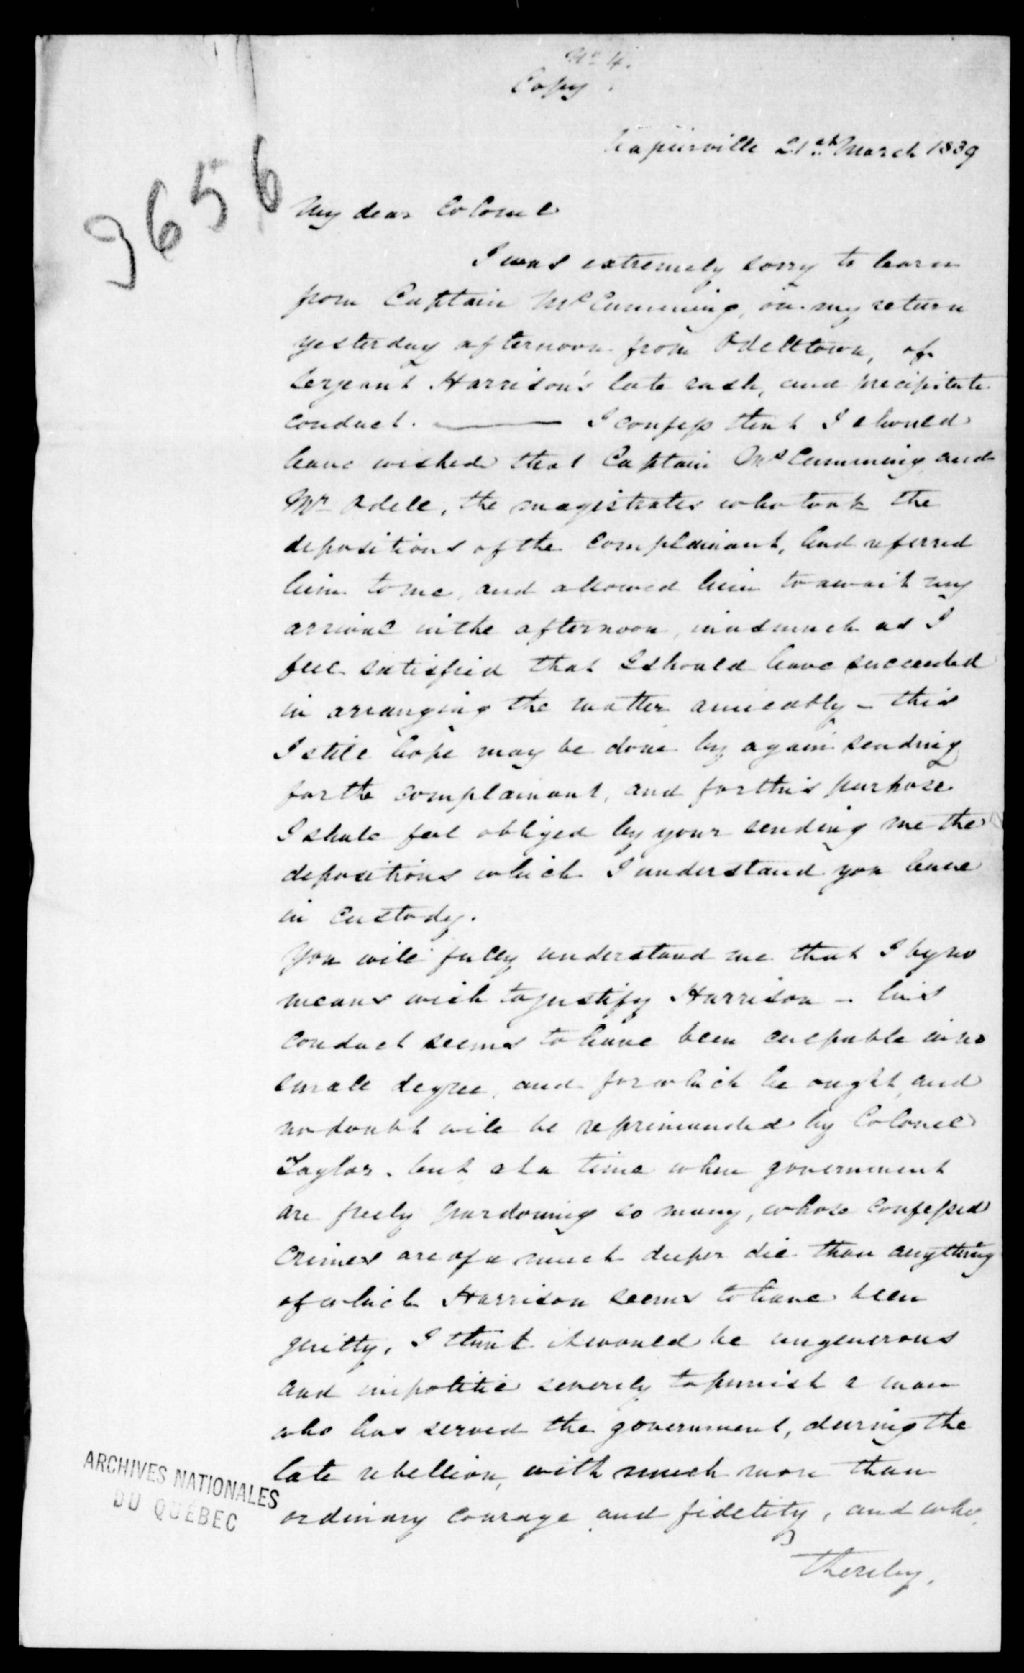 No 4.
Copy.
Napierville 21st March 1839
3656
My dear Colonel
I was extremely sorry to learn
from Captain McCumming, on my return
yesterday afternoon from Odelltown, of
Serjeant Harrison's late rash, and precipitate
conduct. — I confess that I should
have wished that Captain McCumming and
Mr Odell, the magistrates who took the
depositions of the complainant, had referred
him to me, and allowed him to await my
arrival in the afternoon, inasmuch as I
feel satisfied that I should have succeeded
in arranging the matter amicably – this
I still hope may be done by again sending
for the complainant, and for this purpose
I shall feel obliged by your sending me the
depositions which I understand you have
in custody.
You will fully understand me that I by no
means wish to justify Harrison – his
conduct seems to have been culpable in no
small degree, and for which he ought, and
no doubt will be reprimanded by Colonel
Taylor. but at a time when government
are freely pardoning so many, whose confessed
crimes are of a much deeper die than anything
of which Harrison seems to have been
guilty, I think it would be ungenerous
and impolitic severely to punish a man
who has served the government, during the
late rebellion, with much more than
ordinary courage and fidelity, and who
thereby,
ARCHIVES NATIONALES
DU QUÉBEC